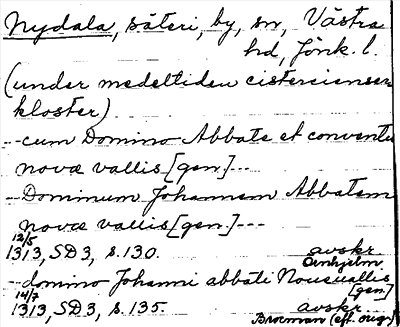 Nydala, säteri, by, sn, Västra
hd, Jönk. l.
(under medeltiden cistercienser
kloster).
--cum Domino Abbate et conventu
novæ vallis [gen]---
--Dominum Johannem Abbatem
novæ vallis [gen.]---
12/5
1313, SD3, s. 130. avskr
Örnhjelm
--domino Johanni abbati Noueuallis
[gen]
14/7
1313, SD3, s. 135. avskr
Brocman (eft. orig.)